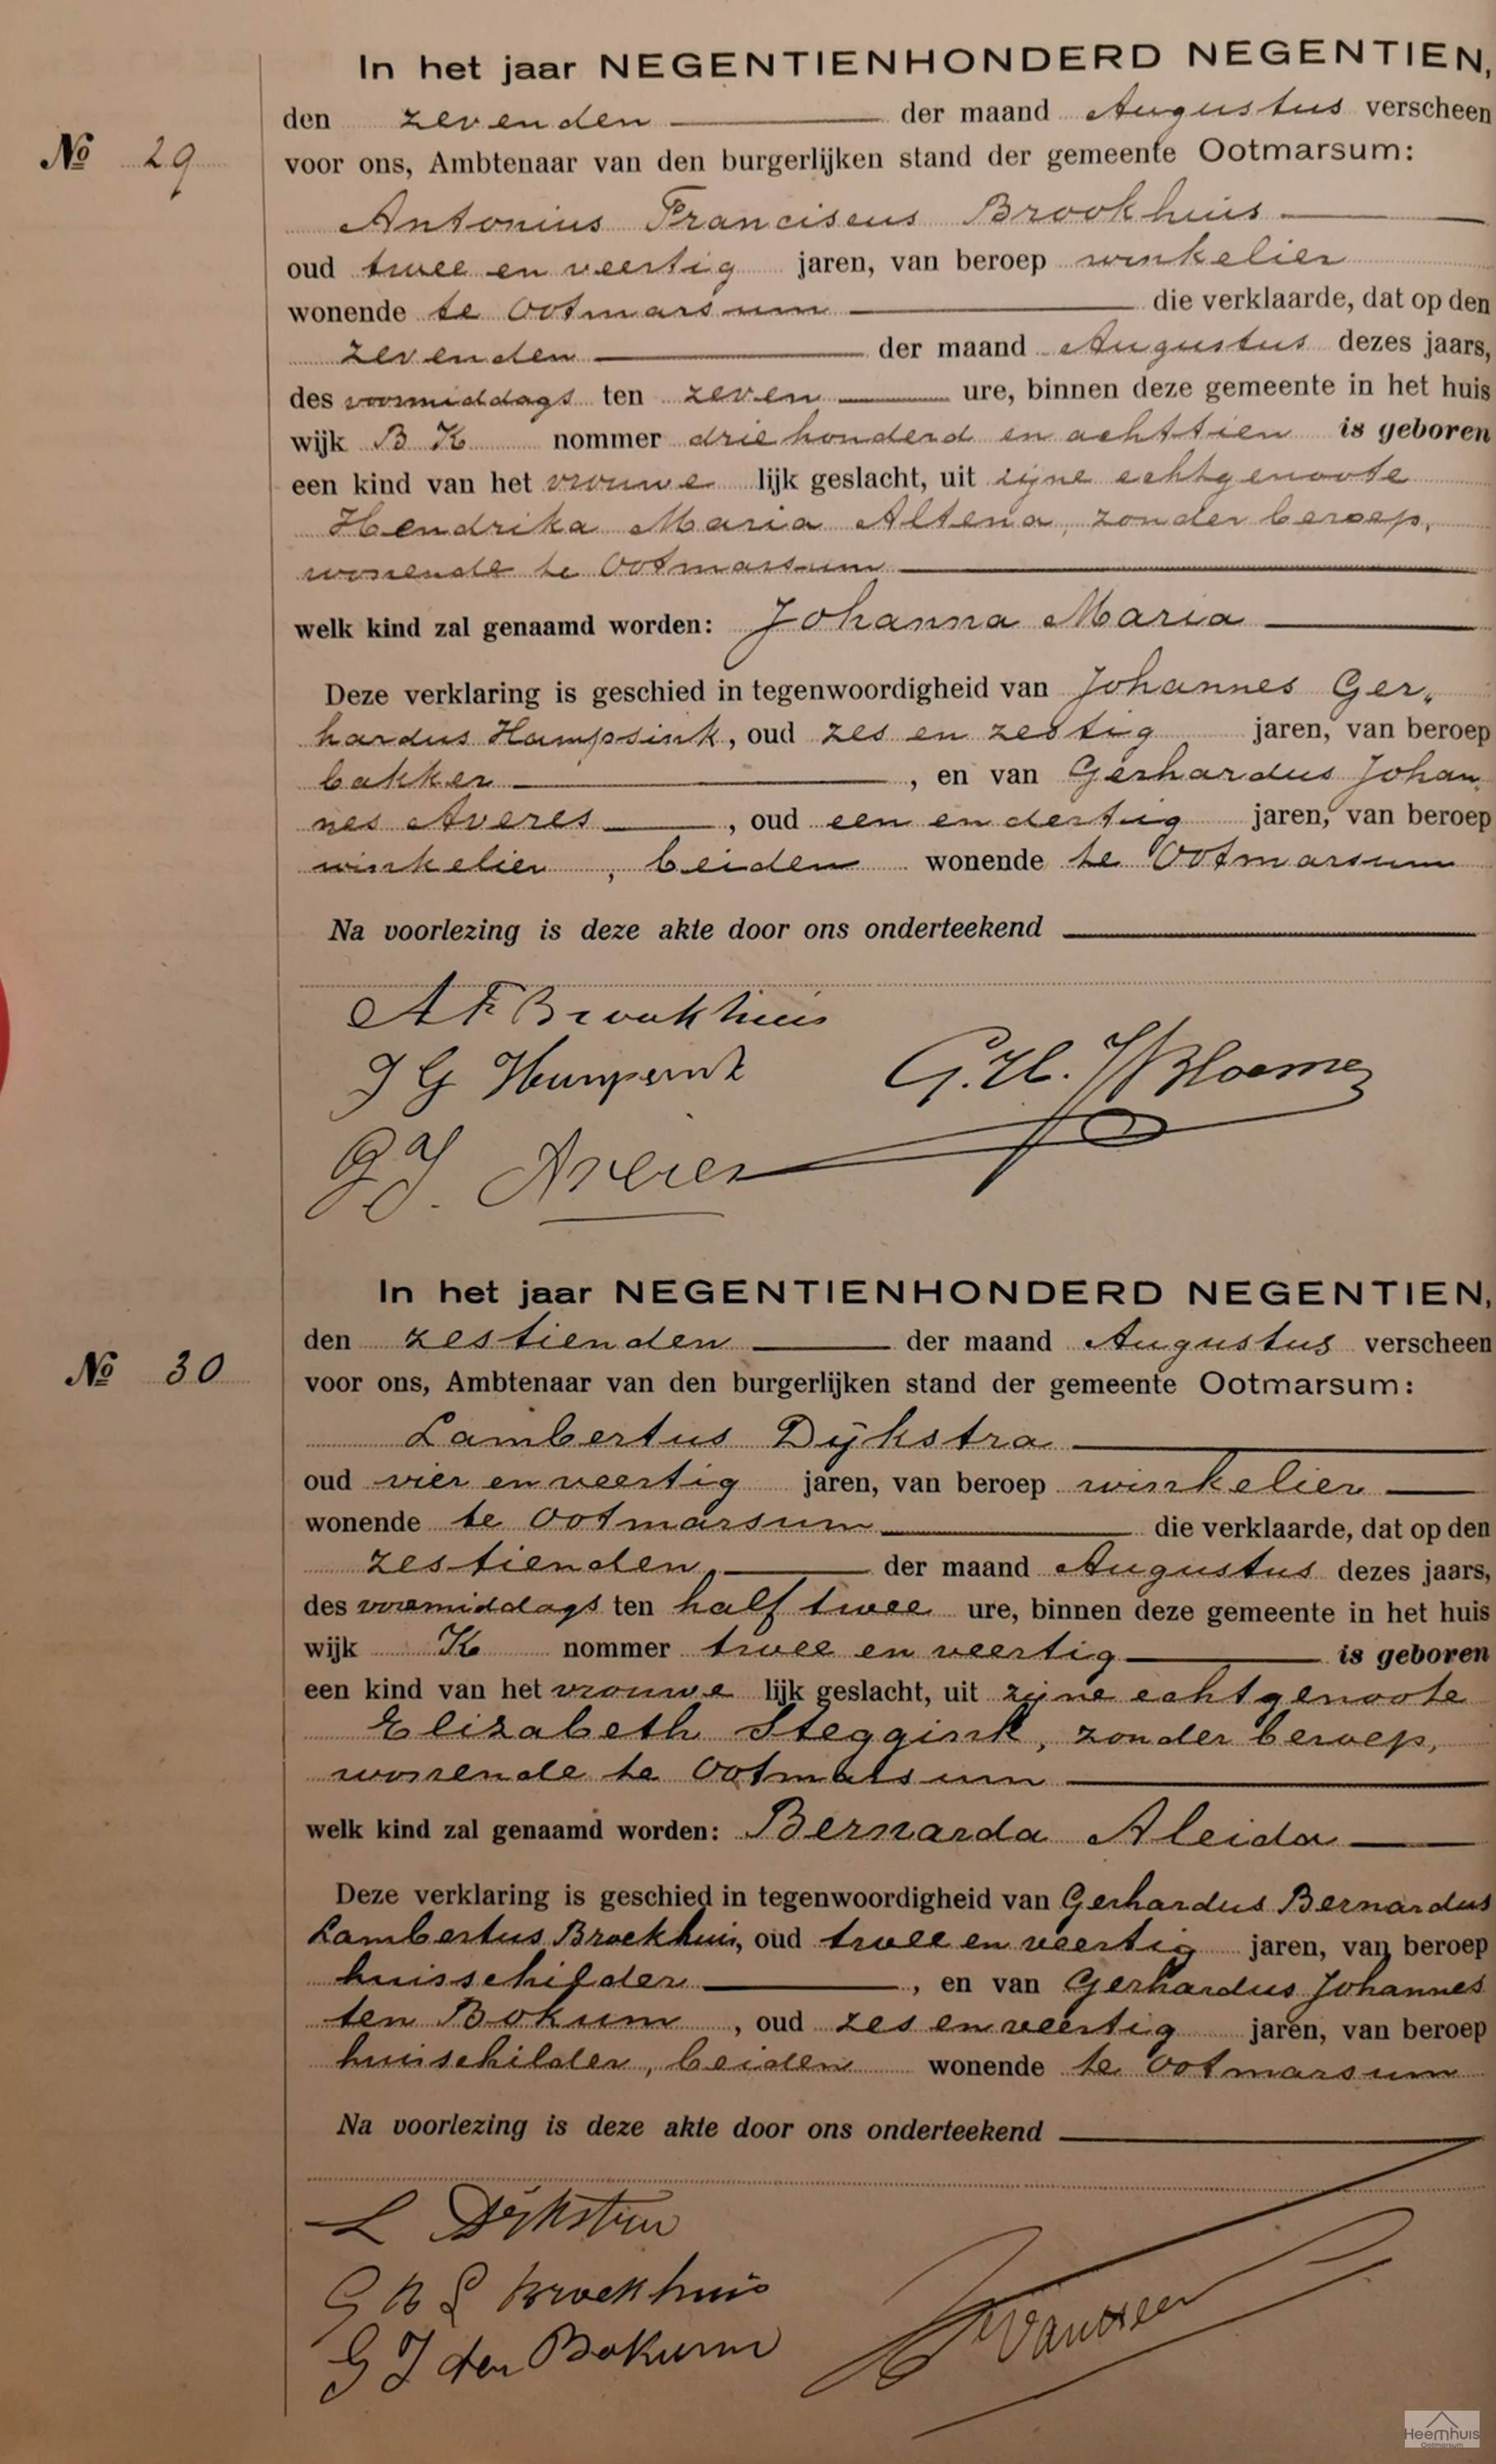 In het jaar NEGENTIENHONDERD NEGENTIEN,
den zevenden der maand Augustus verscheen
№ 29
voor ons, Ambtenaar van den burgerlijken stand der gemeente Ootmarsum:
Antonius Franciscus Brookhuis
oud twee en veertig jaren, van beroep winkelier
wonende te Ootmarsum die verklaarde, dat op den
zevenden der maand Augustus dezes jaars,
des voormiddags ten zeven ure, binnen deze gemeente in het huis
wijk B K nommer driehonderd en achttien is geboren
een kind van het vrouwe lijk geslacht, uit zijne echtgenoote
Hendrika Maria Altena, zonder beroep,
wonende te Ootmarsum
welk kind zal genaamd worden: Johanna Maria
Deze verklaring is geschied in tegenwoordigheid van Johannes Ger„
hardus Hampsink, oud zes en zestig jaren, van beroep
bakker, en van Gerhardus Johan„
nes Averes, oud een en dertig jaren, van beroep
winkelier, beiden wonende te Ootmarsum
Na voorlezing is deze akte door ons onderteekend
A F Brookhuis
J G
G J. Averes
In het jaar NEGENTIENHONDERD NEGENTIEN,
den zestienden der maand Augustus verscheen
№ 30
voor ons, Ambtenaar van den burgerlijken stand der gemeente Ootmarsum:
Lambertus Dijkstra
oud vier en veertig jaren, van beroep winkelier
wonende te Ootmarsum die verklaarde, dat op den
zestienden der maand Augustus dezes jaars,
des voormiddags ten half twee ure, binnen deze gemeente in het huis
wijk K nommer twee en veertig is geboren
een kind van het vrouwe lijk geslacht, uit zijne echtgenoote
Elizabeth Steggink, zonder beroep,
wonende te Ootmarsum
welk kind zal genaamd worden: Bernarda Aleida
Deze verklaring is geschied in tegenwoordigheid van Gerhardus Bernardus
Lambertus Broekhuis, oud twee en veertig jaren, van beroep
huisschilder, en van Gerhardus Johannes
ten Bokum, oud zes en veertig jaren, van beroep
huisschilder, beiden wonende te Ootmarsum
Na voorlezing is deze akte door ons onderteekend
L Dijkstra
G B L Broekhuis
G J ten Bokum
Heemhuis
Ootmarsum